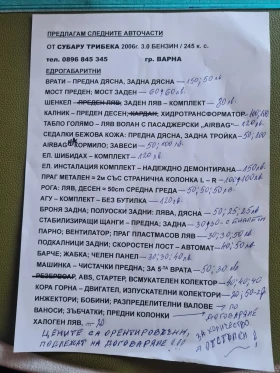 ПРЕДЛАГАМ СЛЕДНИТЕ АВТОЧАСТИ
ОТ СУБАРУ ТРИБЕКА 2006г. 3.0 БЕНЗИН / 245 к. с.
тел. 0896 845 345 гр. ВАРНА
ЕДРОГАБАРИТНИ
ВРАТИ – ПРЕДНА ДЯСНА, ЗАДНА ДЯСНА – 150; 50 лв
МОСТ ПРЕДЕН; МОСТ ЗАДЕН – 60; 60 лв.
ШЕНКЕЛ – ПРЕДЕН ЛЯВ, ЗАДЕН ЛЯВ – КОМПЛЕКТ – 80 лв.
КАЛНИК – ПРЕДЕН ДЕСЕН, КАРДАН; ХИДРОТРАНСФОРМАТОР – 100,
ТАБЛО ГОЛЯМО – ЛЯВ ВОЛАН С ПАСАДЖЕРСКИ „AIRBAG“ – 120 лв.
СЕДАЛКИ БЕЖОВА КОЖА: ПРЕДНА ДЯСНА, ЗАДНА ТРОЙКА – 50, 100
AIRBAG КОРМИЛО; ЗАВЕСИ – 50; 100 лв.
ЕЛ. ШИБИДАХ – КОМПЛЕКТ – 120 лв
ЕЛ. ИНСТАЛАЦИЯ КОМПЛЕКТ – НАДЕЖДНО ДЕМОНТИРАНА – 150 лв.
ПРАГ МЕТАЛЕН = 2м СЪС СТРАНИЧНА КОЛОНКА L – R – 100; 100 лв
РОГА: ЛЯВ, ДЕСЕН = 50cm СРЕДНА ГРЕДА – 50; 50; 50 лв.
АГУ – КОМПЛЕКТ БЕЗ БУТИЛКА – 120 лв.
БРОНЯ ЗАДНА; ПОЛУОСКИ ЗАДНИ: ЛЯВА, ДЯСНА – 50; 25; 25 лв
СТАБИЛИЗИРАЩИ ЩАНГИ – ПРЕДНА; ЗАДНА – 30; 30
ПАРНО; ВЕНТИЛАТОР; ПРАГ ПЛАСТМАСОВ ЛЯВ – 50; 30; 50 лв.
ПОДКАЛНИЦИ ЗАДНИ; СКОРОСТЕН ЛОСТ – АВТОМАТ – 40; 50 лв
БАРЧЕ; ЖАБКА; ЧЕЛЕН ПАНЕЛ – 30; 30; 40 лв
МАШИНКА – ЧИСТАЧКИ ПРЕДНА; ЗА 5та ВРАТА – 50; 30 лв
РЕЗЕРВОАР, ABS, СТАРТЕР, ВСМУКАТЕЛЕН КОЛЕКТОР – 60; 40; 40
КОРА ГОРНА – ДВИГАТЕЛ, ИЗПУСКАТЕЛНИ КОЛЕКТОРИ – 20; 50
ИНЖЕКТОРИ; БОБИНИ; РАЗПРЕДЕЛИТЕЛНИ ВАЛОВЕ – по
ВАНОСИ; ЗЪБЧАТКИ; ПРЕДНИ КОЛОНКИ – ДОГОВАРЯНЕ
ХАЛОГЕН ЛЯВ – 20 ЗА КОЛИЧЕСТВО
ЦЕНИТЕ СА ОРИЕНТИРОВЪЧНИ, ОТСТЪПКИ!
ПОДЛЕЖАТ НА ДОГОВАРЯНЕ!!!